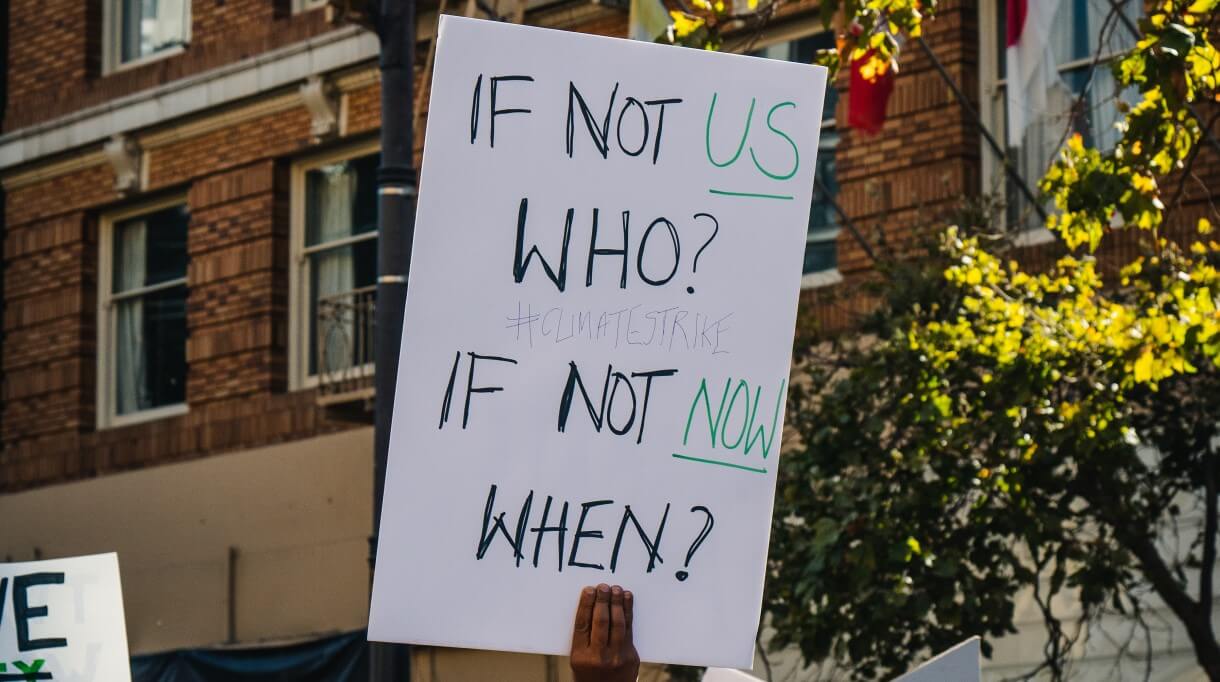 IF NOT US
WHO?
#CLIMATESTRIKE
IF NOT NOW
WHEN?
VE